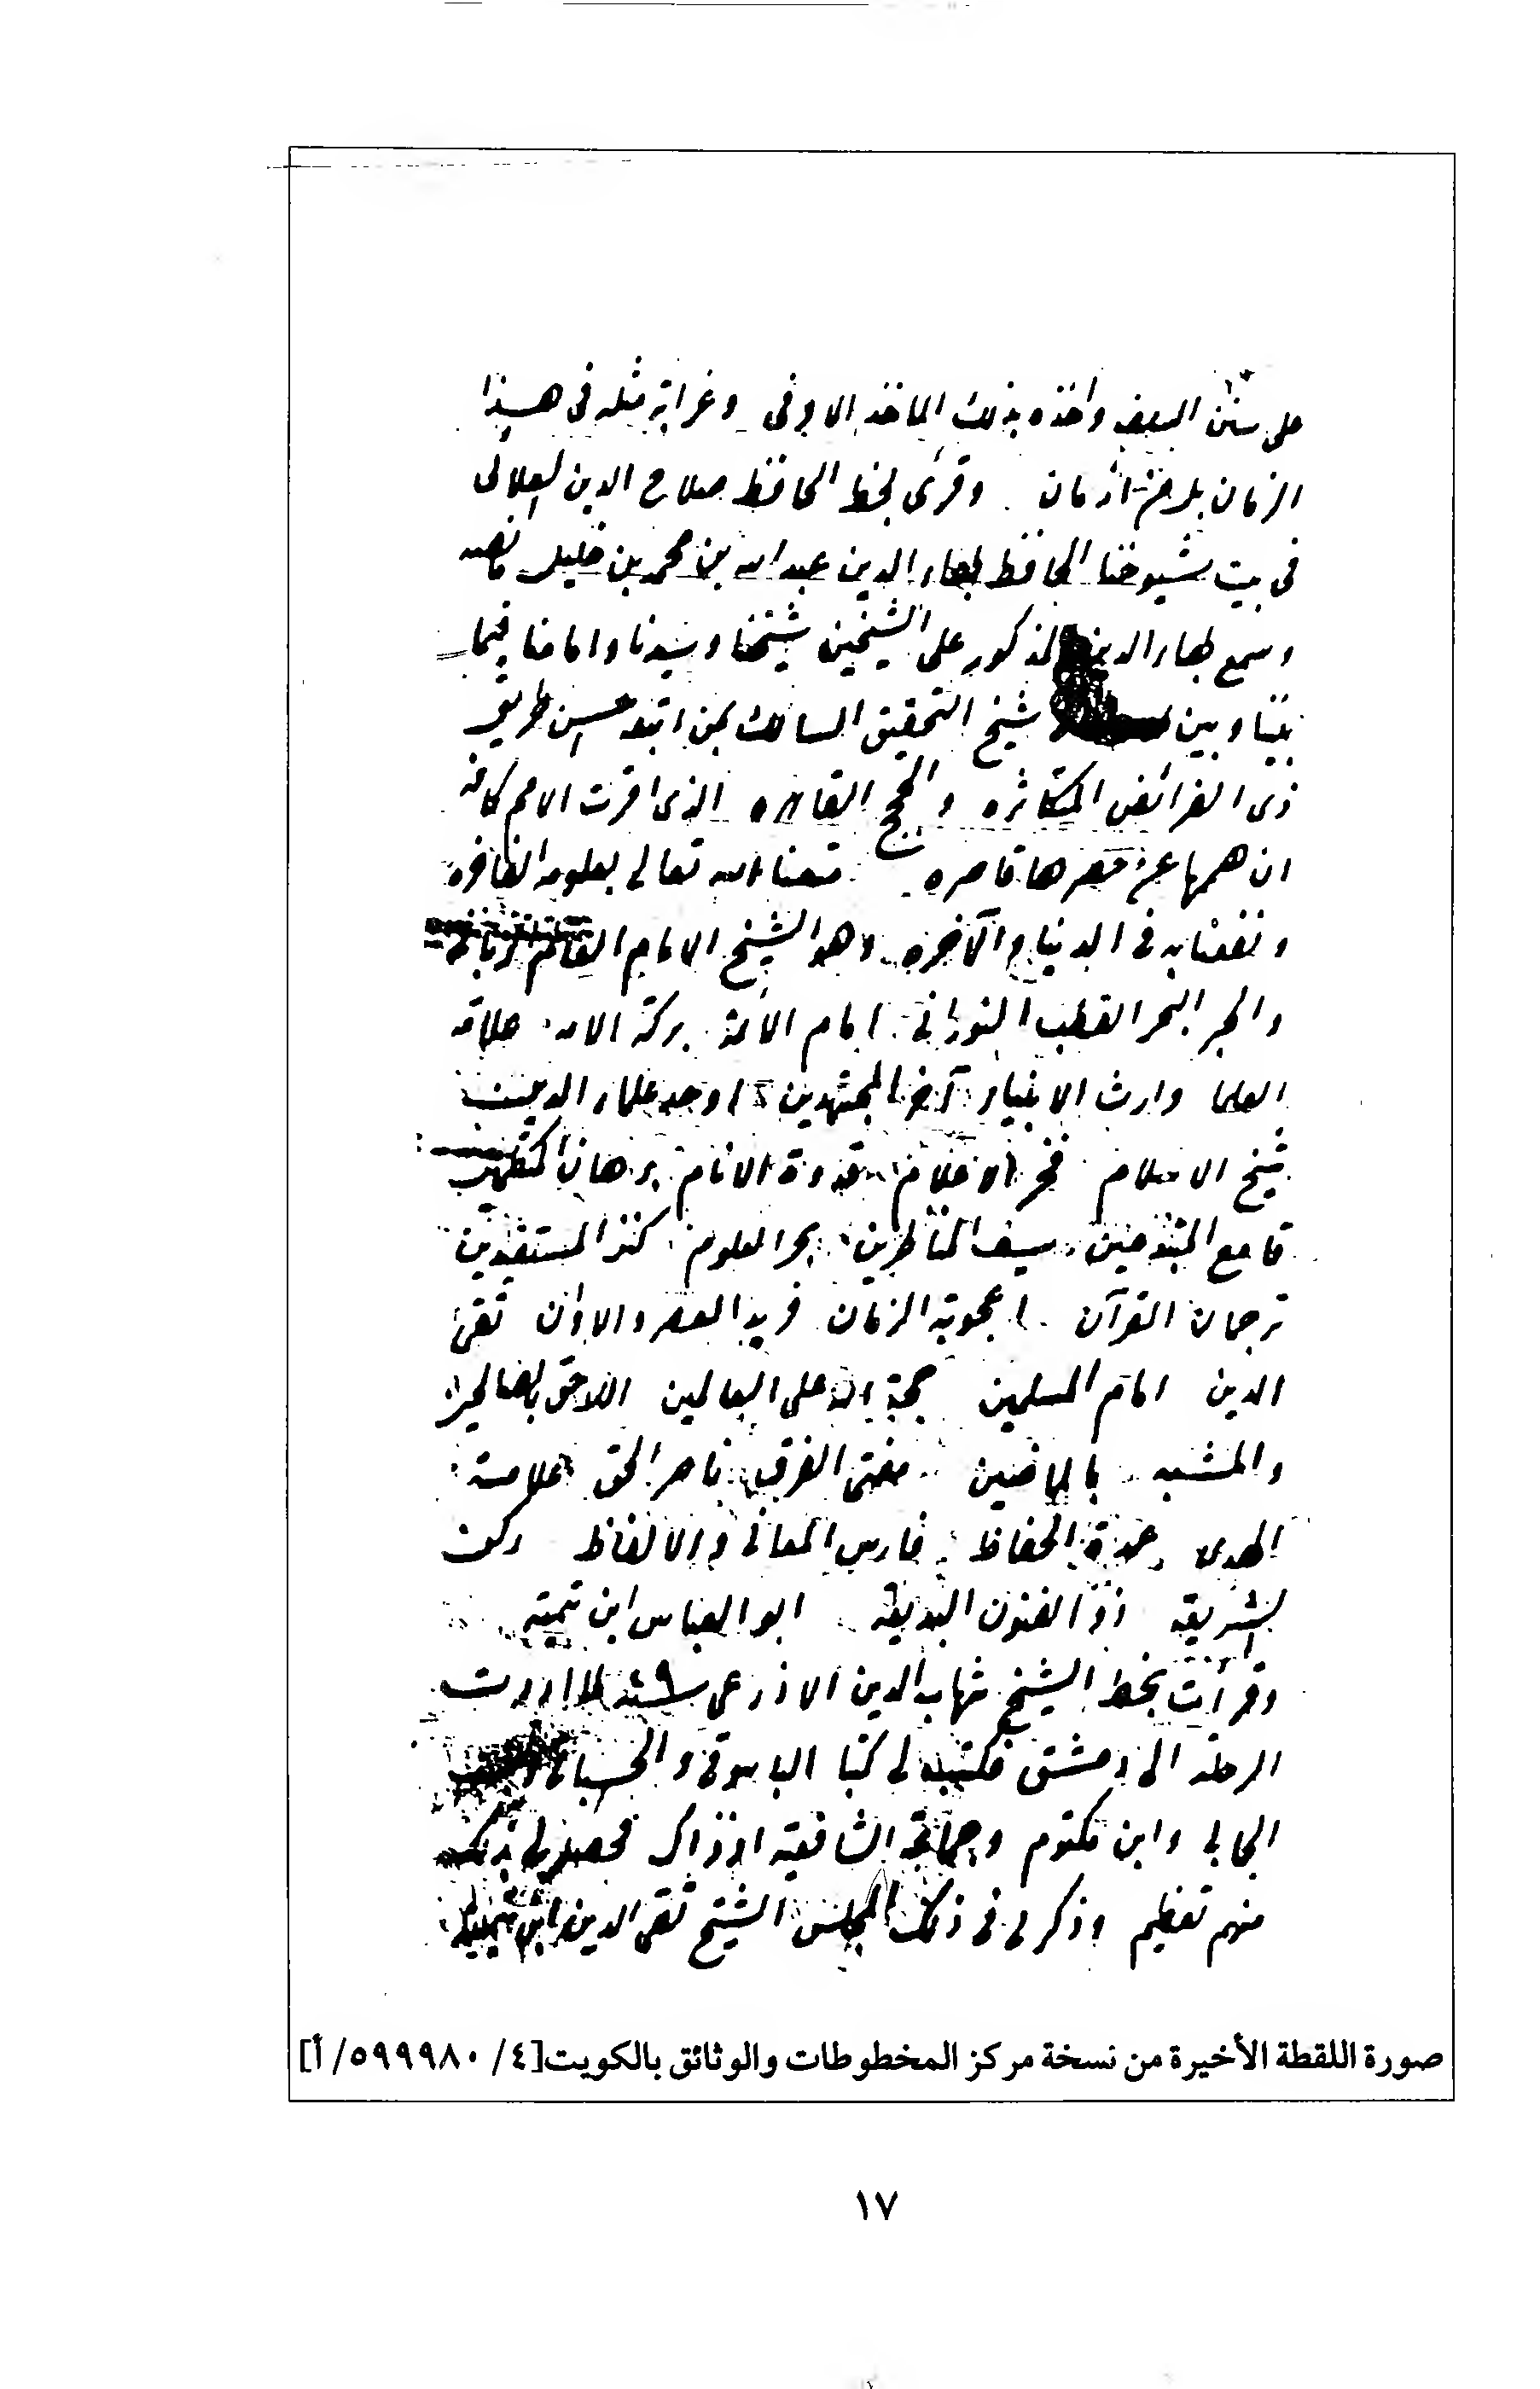 على سنن السلف واخذه بذلك الماخذ الاوفى وغرابة مثله فى هذا
الزمان بل من ازمان وقرئ بخط الحافظ صلاح الدين العلائى
فى بيت شيوخنا الحافظ بهاء الدين عبد الله بن محمد بن خليل ما نصه
وسمع بهاء الدين المذكور على الشيخين شيخنا وسيدنا وامامنا فيما
بيننا وبين شيخ التحقيق السالك بمن اتبعه احسن طريق
ذى الفرائض المتكاثره والحجج القاهره الذى اقرت الامم كافة
ان هممها عن حصرها قاصره متعنا الله تعالى بعلومه الفاخره
ونفعنا به فى الدنيا والآخره وهو الشيخ الامام العالم الربانى
والحبر البحر القطب النورانى امام الأئمة بركة الامه علامة
العلما وارث الانبياء آخر المجتهدين اوحد علماء الدين
شيخ الاسلام فخر الاعلام قدوة الانام برهان المتكلمين
قامع المبتدعين سيف المناظرين بحر العلوم كنز المستفيدين
ترجمان القرآن اعجوبة الزمان فريد العصر والاوان تقى
الدين امام المسلمين حجة الله على العالمين اللاحق بالصالحين
والمشبه بالماضين مفتى الفرق ناصر الحق علامة
الهدى عمدة الحفاظ فارس المعانى والالفاظ ركن
الشريعة ذو الفنون البديعة ابو العباس ابن تيمية
وقرأت بخط الشيخ شهاب الدين الاذرعى لما اردت
الرحلة الى دمشق فكتب لى كتبا الى الباسوفى والحسبانى
الجابى وابن مكتوم وجماعة الشافعية اذ ذاك فحصل لى بذلك
منهم تعظيم وذكر لى فى ذلك المجلس الشيخ تقى الدين ابن تيمية
صورة اللقطة الأخيرة من نسخة مركز المخطوطات والوثائق بالكويت[٤/ ٥٩٩٩٨٠/أ]
١٧